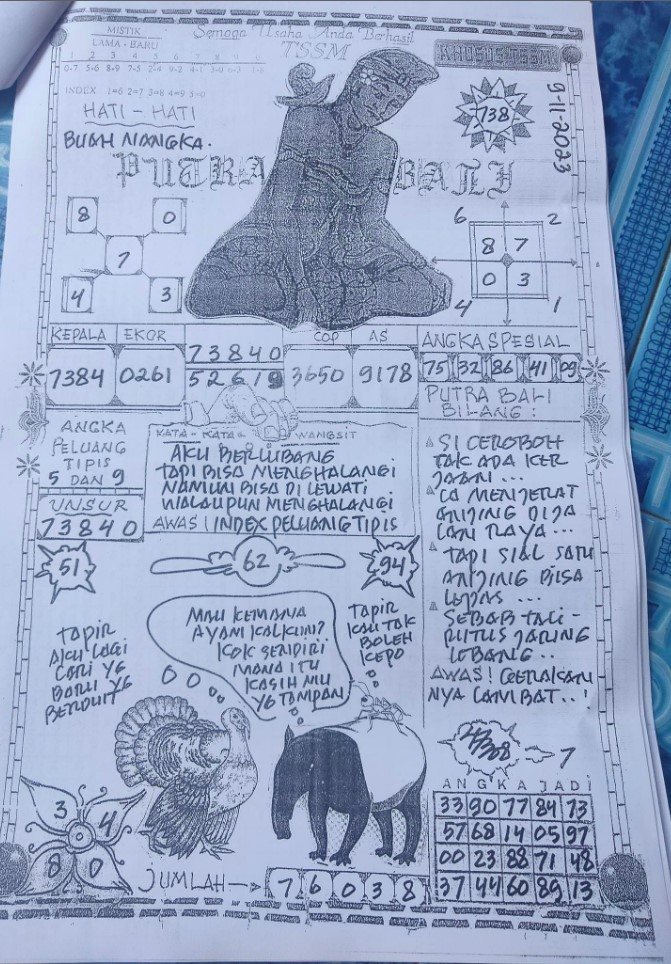 MISTIK
LAMA - BARU
Semoga Usaha Anda Berhasil
TSSM
KHUSUS: TSSM
1 2 3 4 5 6 7 8 9
0-7 5-6 8-9 7-5 2-4 9-2 4-1
INDEX 1=6 2=7 3=8 4=9 5=0
HATI - HATI
BUAH NANGKA.
738
9-11-2023
PUTRA BALI
8 0
7
4 3
6 2
8 7
0 3
4 1
KEPALA EKOR
7384 0261
73840
52619
COP AS
3650 9178
ANGKA SPESIAL
75 32 86 41 09
PUTRA BALI
BILANG :
ANGKA
PELUANG
TIPIS
5 DAN 9
UNSUR
73840
KATA - KATA WANGSIT
AKU BERLUBANG
TAPI BISA MENGHALANGI
NAMUN BISA DI LEWATI
WALAUPUN MENGHALANGI
AWAS ! INDEX PELUANG TIPIS
SI CEROBOH
TAK ADA KER
JAAN ...
MENJERAT
ANJING DIJA
LAN RAYA ...
TAPI SIAL SATU
ANJING BISA
LEPAS ...
SEBAB TALI -
PUTUS JARING
LOBANG ..
AWAS ! GERAKAN
NYA LAMBAT..!
51
62
94
TAPIR
AKU LAGI
CARI YG
BARU YG
BERDUIT
MAU KEMANA
AYAM KALKUN?
KOK SENDIRI
MANA ITU
KASIH MU
YG TOMPAN
TAPIR
KAU TAK
BOLEH
KEPO
7
ANGKA JADI
33 90 77 84 73
57 68 14 05 97
00 23 88 71 48
37 44 60 89 13
3 4
8 0
JUMLAH
7 6 0 3 8